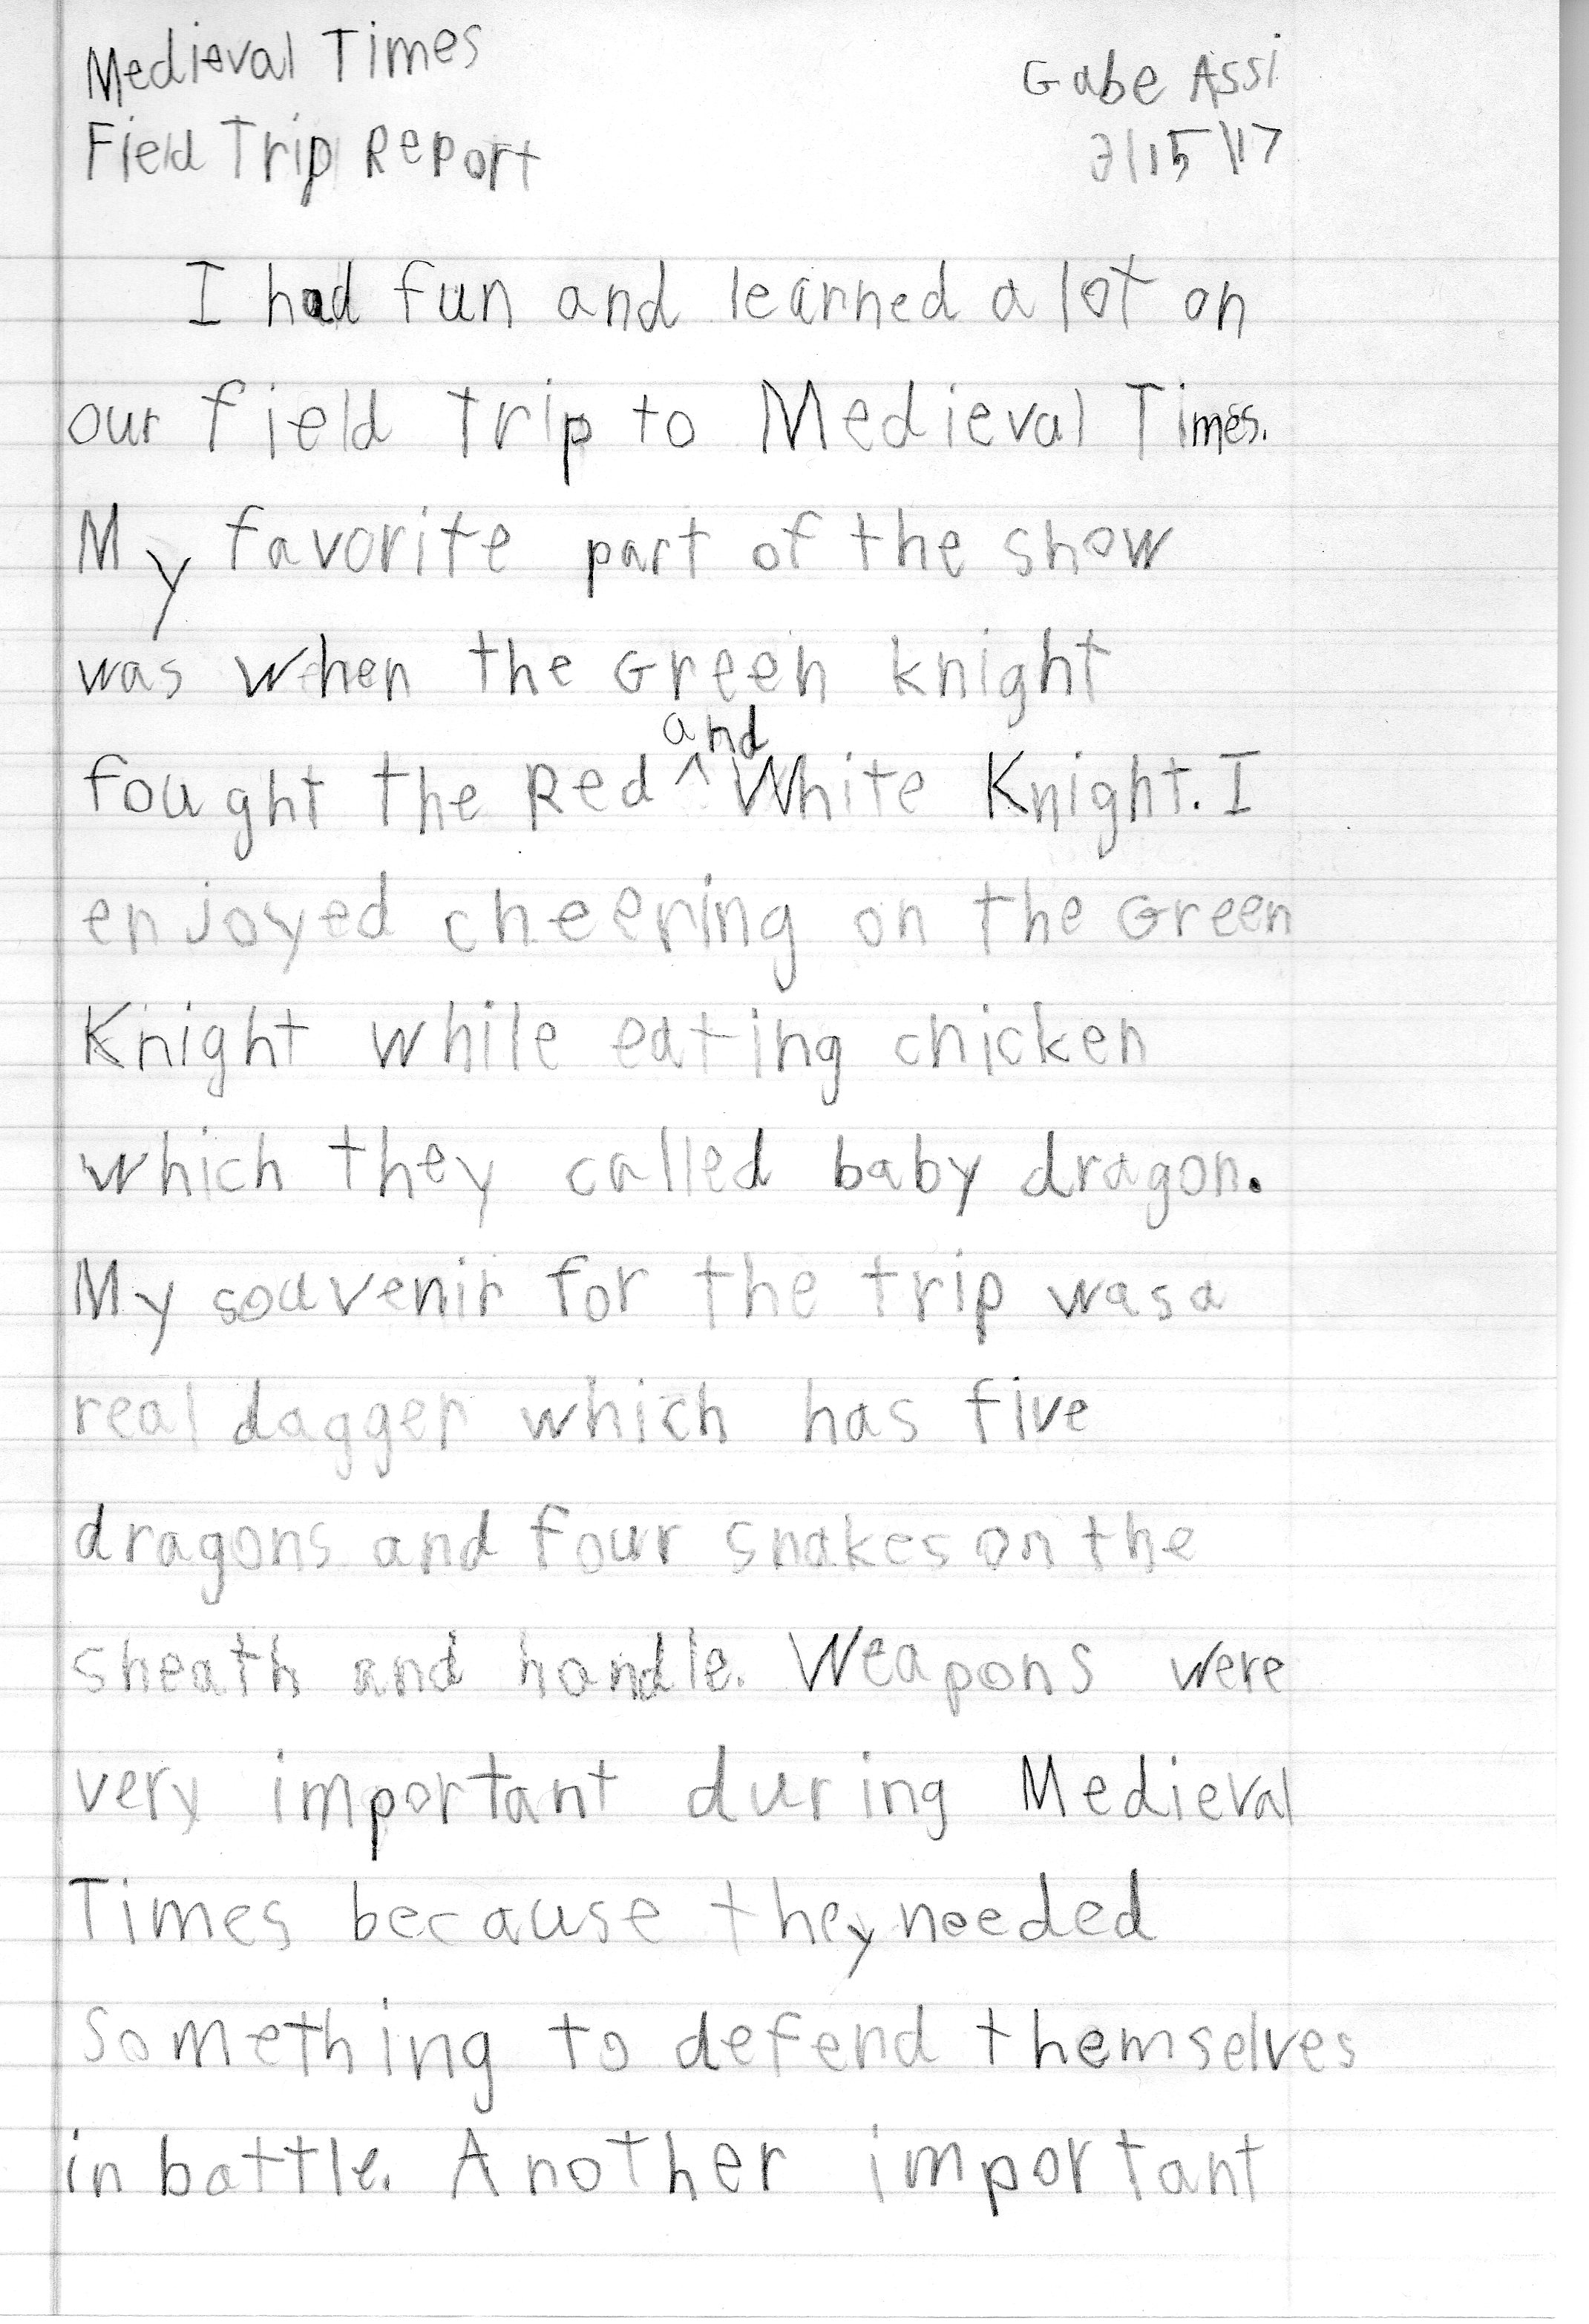 Medieval Times
Gabe Assi
Field Trip Report
3/15/17
I had fun and learned a lot on
our field trip to Medieval Times.
My favorite part of the show
was when the Green knight
fought the Red ^ and White Knight. I
enjoyed cheering on the Green
Knight while eating chicken
which they called baby dragon.
My souvenir for the trip was a
real dagger which has five
dragons and four snakes on the
sheath and handle. Weapons were
very important during Medieval
Times because they needed
something to defend themselves
in battle. Another important